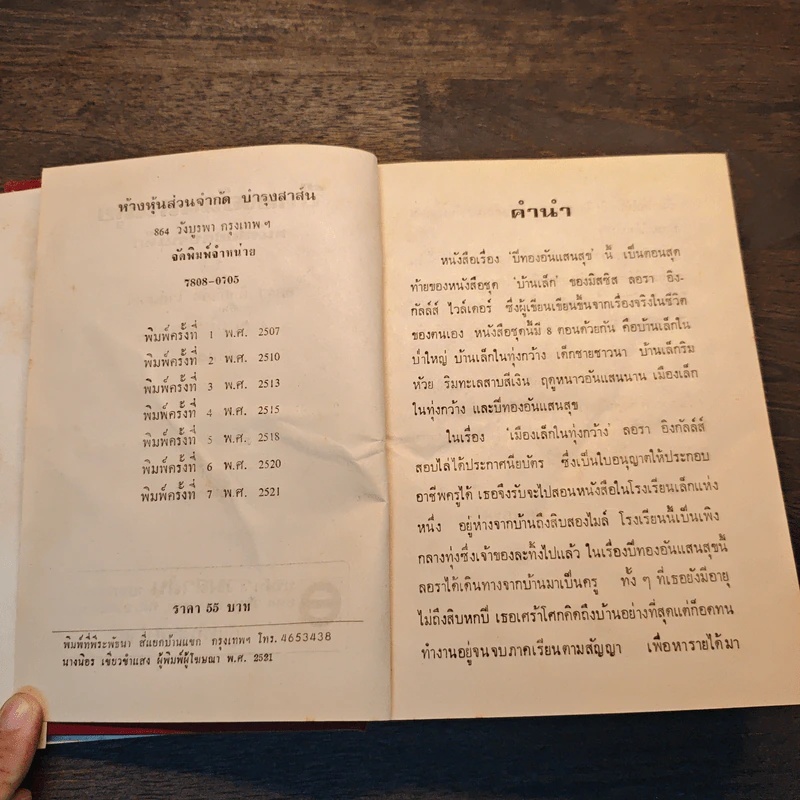 ห้างหุ้นส่วนจำกัด บำรุงสาส์น
864 วังบูรพา กรุงเทพ ฯ
จัดพิมพ์จำหน่าย
7808-0705
พิมพ์ครั้งที่ 1 พ.ศ. 2507
พิมพ์ครั้งที่ 2 พ.ศ. 2510
พิมพ์ครั้งที่ 3 พ.ศ. 2513
พิมพ์ครั้งที่ 4 พ.ศ. 2515
พิมพ์ครั้งที่ 5 พ.ศ. 2518
พิมพ์ครั้งที่ 6 พ.ศ. 2520
พิมพ์ครั้งที่ 7 พ.ศ. 2521
ราคา 55 บาท
พิมพ์ที่พีระพัธนา สี่แยกบ้านแขก กรุงเทพฯ โทร. 4653438
นางนิอร เขียวขำแสง ผู้พิมพ์ผู้โฆษณา พ.ศ. 2521
คำนำ
หนังสือเรื่อง 'ปีทองอันแสนสุข' นี้ เป็นตอนสุด
ท้ายของหนังสือชุด 'บ้านเล็ก' ของมิสซิส ลอรา อิง-
กัลล์ส์ ไวล์เดอร์ ซึ่งผู้เขียนเขียนขึ้นจากเรื่องจริงในชีวิต
ของตนเอง หนังสือชุดนี้มี 8 ตอนด้วยกัน คือบ้านเล็กใน
ป่าใหญ่ บ้านเล็กในทุ่งกว้าง เด็กชายชาวนา บ้านเล็กริม
ห้วย ริมทะเลสาบสีเงิน ฤดูหนาวอันแสนนาน เมืองเล็ก
ในทุ่งกว้าง และปีทองอันแสนสุข
ในเรื่อง 'เมืองเล็กในทุ่งกว้าง' ลอรา อิงกัลล์ส์
สอบไล่ได้ประกาศนียบัตร ซึ่งเป็นใบอนุญาตให้ประกอบ
อาชีพครูได้ เธอจึงรับจะไปสอนหนังสือในโรงเรียนเล็กแห่ง
หนึ่ง อยู่ห่างจากบ้านถึงสิบสองไมล์ โรงเรียนนี้เป็นเพิง
กลางทุ่งซึ่งเจ้าของละทิ้งไปแล้ว ในเรื่องปีทองอันแสนสุขนี้
ลอราได้เดินทางจากบ้านมาเป็นครู ทั้ง ๆ ที่เธอยังมีอายุ
ไม่ถึงสิบหกปี เธอเศร้าโศกคิดถึงบ้านอย่างที่สุดแต่ก็อดทน
ทำงานอยู่จนจบภาคเรียนตามสัญญา เพื่อหารายได้มา